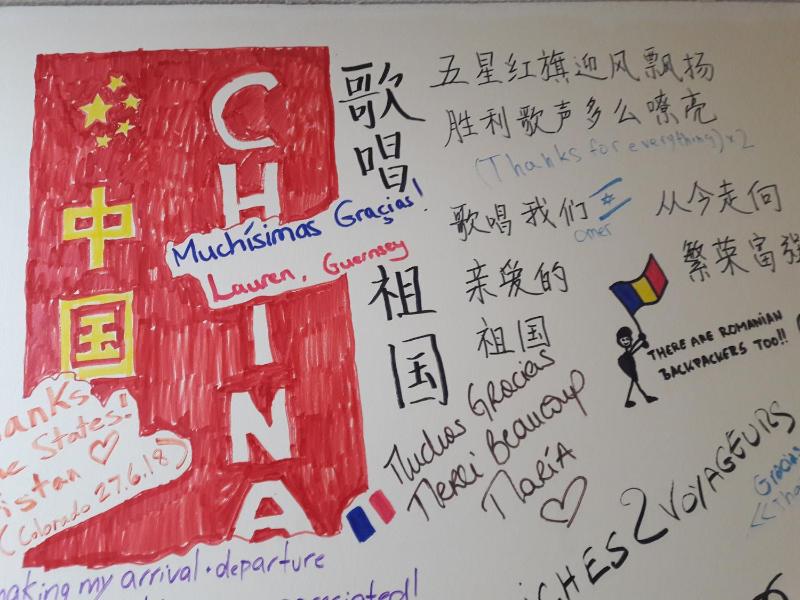 中国
CHINA
Muchísimas Graçias!
Lauren, Guernsey
歌唱祖国
五星红旗迎风飘扬
胜利歌声多么嘹亮
(Thanks for everything) x2
歌唱我们
omer
亲爱的
祖国
从今走向
繁荣富强
THERE ARE ROMANIAN
BACKPACKERS TOO!!
States!
(Colorado 27.6.18)
Muchas Gracias
Merci Beaucoup
María
2 VOYAGEURS
my arrival + departure